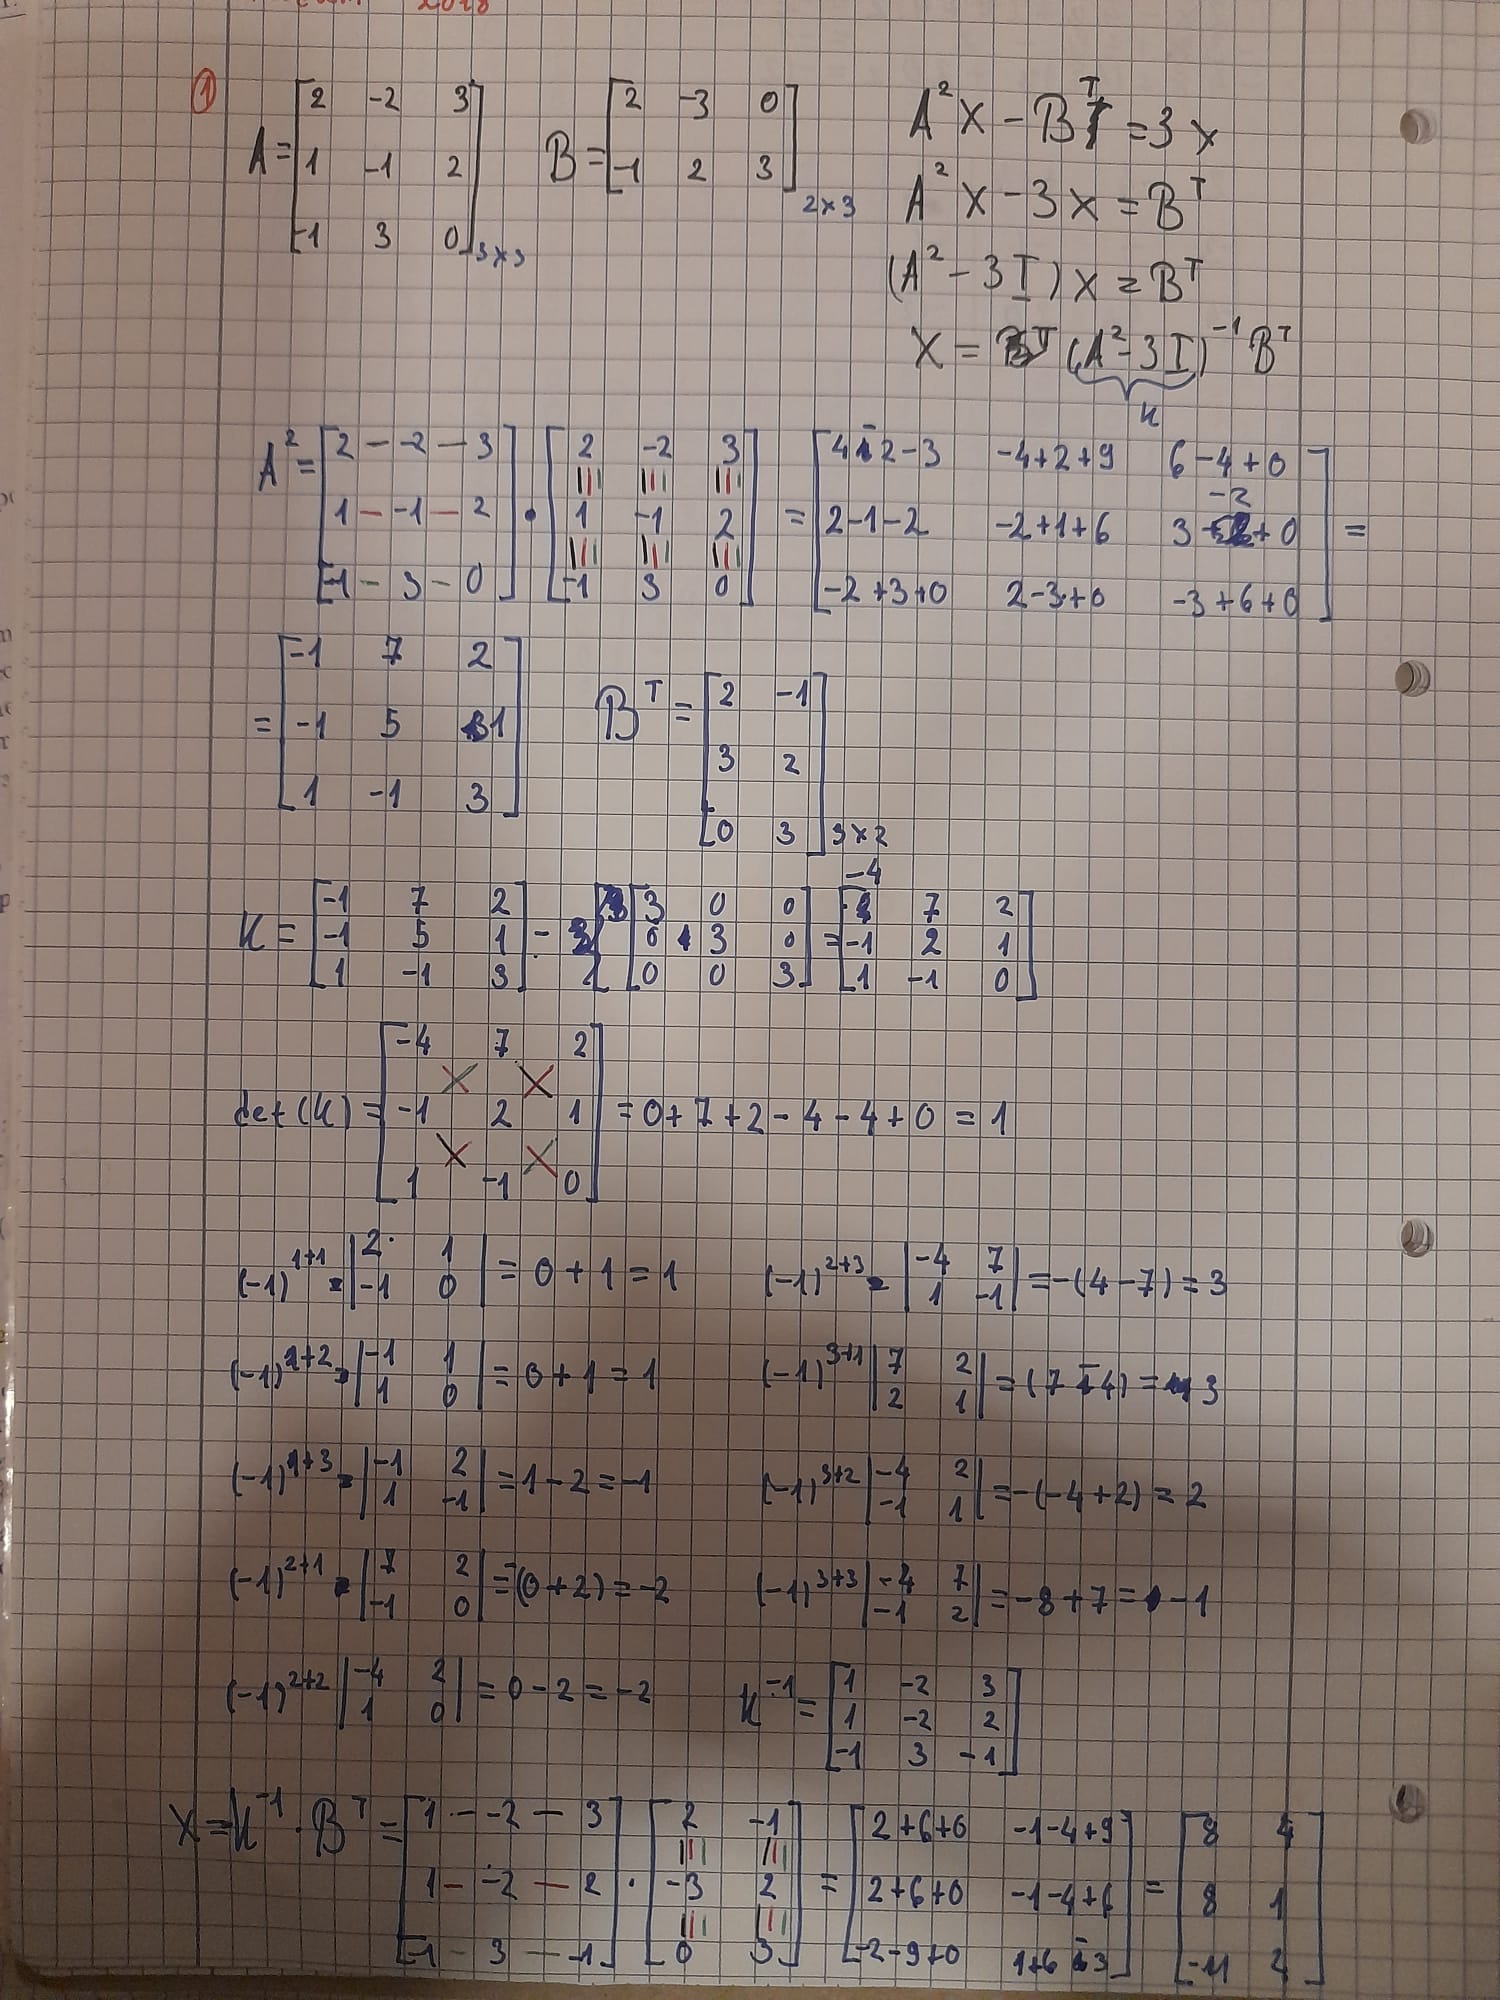 2018
① A = [2 -2 3; 1 -1 2; -1 3 0]3×3 B = [2 -3 0; -1 2 3]2×3
A²X - Bᵀ = 3X
A²X - 3X = Bᵀ
(A² - 3I)X = Bᵀ
X = (A² - 3I)⁻¹Bᵀ
K
A² = [2 - -2 - 3; 1 - -1 - 2; -1 - 3 - 0] · [2 -2 3; 1 -1 2; -1 3 0] = [4-2-3 -4+2+9 6-4+0; 2-1-2 -2+1+6 3-2+0; -2+3+0 2-3+0 -3+6+0] =
= [-1 7 2; -1 5 1; 1 -1 3] Bᵀ = [2 -1; 3 2; 0 3]3×2
K = [-1 7 2; -1 5 1; 1 -1 3] - [3 0 0; 0 3 0; 0 0 3] = [-4 7 2; -1 2 1; 1 -1 0]
det(K) = [-4 7 2; -1 2 1; 1 -1 0] = 0+7+2-4-4+0 = 1
(-1)¹⁺¹ · |2 1; -1 0| = 0+1 = 1 (-1)²⁺³ · |-4 7; 1 -1| = -(4-7) = 3
(-1)¹⁺² · |-1 1; 1 0| = 0+1 = 1 (-1)³⁺¹ |7 2; 2 1| = (7-4) = 3
(-1)¹⁺³ · |-1 2; 1 -1| = 1-2 = -1 (-1)³⁺² |-4 2; -1 1| = -(-4+2) = 2
(-1)²⁺¹ · |7 2; -1 0| = -(0+2) = -2 (-1)³⁺³ |-4 7; -1 2| = -8+7 = -1
(-1)²⁺² |-4 2; 1 0| = 0-2 = -2 K⁻¹ = [1 -2 3; 1 -2 2; -1 3 -1]
X = K⁻¹ · Bᵀ = [1 - -2 - 3; 1 - -2 - 2; -1 - 3 - -1] · [2 -1; -3 2; 0 3] = [2+6+0 -1-4+9; 2+6+0 -1-4+6; -2-9+0 1+6-3] = [8 4; 8 1; -11 4]